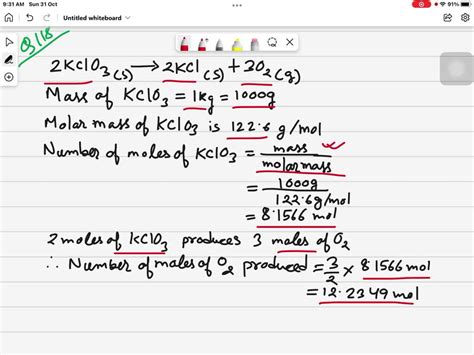 9:31 AM Sun 31 Oct
91%
Untitled whiteboard
Q118
2KClO3(s) → 2KCl(s) + 3O2(g)
Mass of KClO3 = 1kg = 1000g
Molar mass of KClO3 is 122.6 g/mol
Number of moles of KClO3 = mass
molarmass
= 1000g
122.6g/mol
= 8.1566 mol
2 moles of KClO3 produces 3 moles of O2
∴ Number of moles of O2 produced = 3/2 × 8.1566 mol
= 12.2349 mol